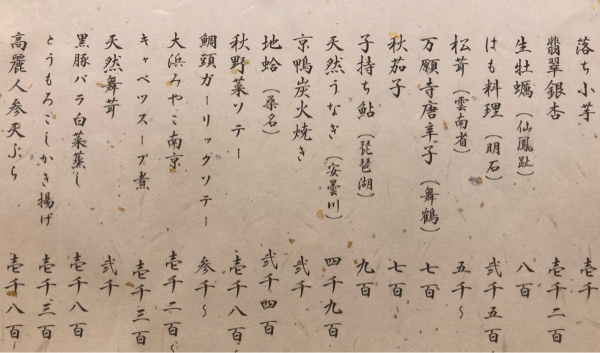 落ち小芋 壱千
翡翠銀杏 壱千二百
生牡蠣(仙鳳趾) 八百
はも料理(明石) 弐千五百〜
松茸(雲南省) 五千〜
万願寺唐辛子(舞鶴) 七百
秋茄子 七百
子持ち鮎(琵琶湖) 九百
天然うなぎ(安曇川) 四千九百
京鴨炭火焼き 弐千
地蛤(桑名) 弐千四百
秋野菜ソテー 壱千八百〜
鯛頭ガーリックソテー 参千〜
大浜みやこ南京 壱千二百〜
キャベツスープ煮 壱千三百
天然舞茸 弐千
黒豚バラ白菜蒸し 壱千八百
とうもろこしかき揚げ 壱千三百
高麗人参天ぷら 壱千八百